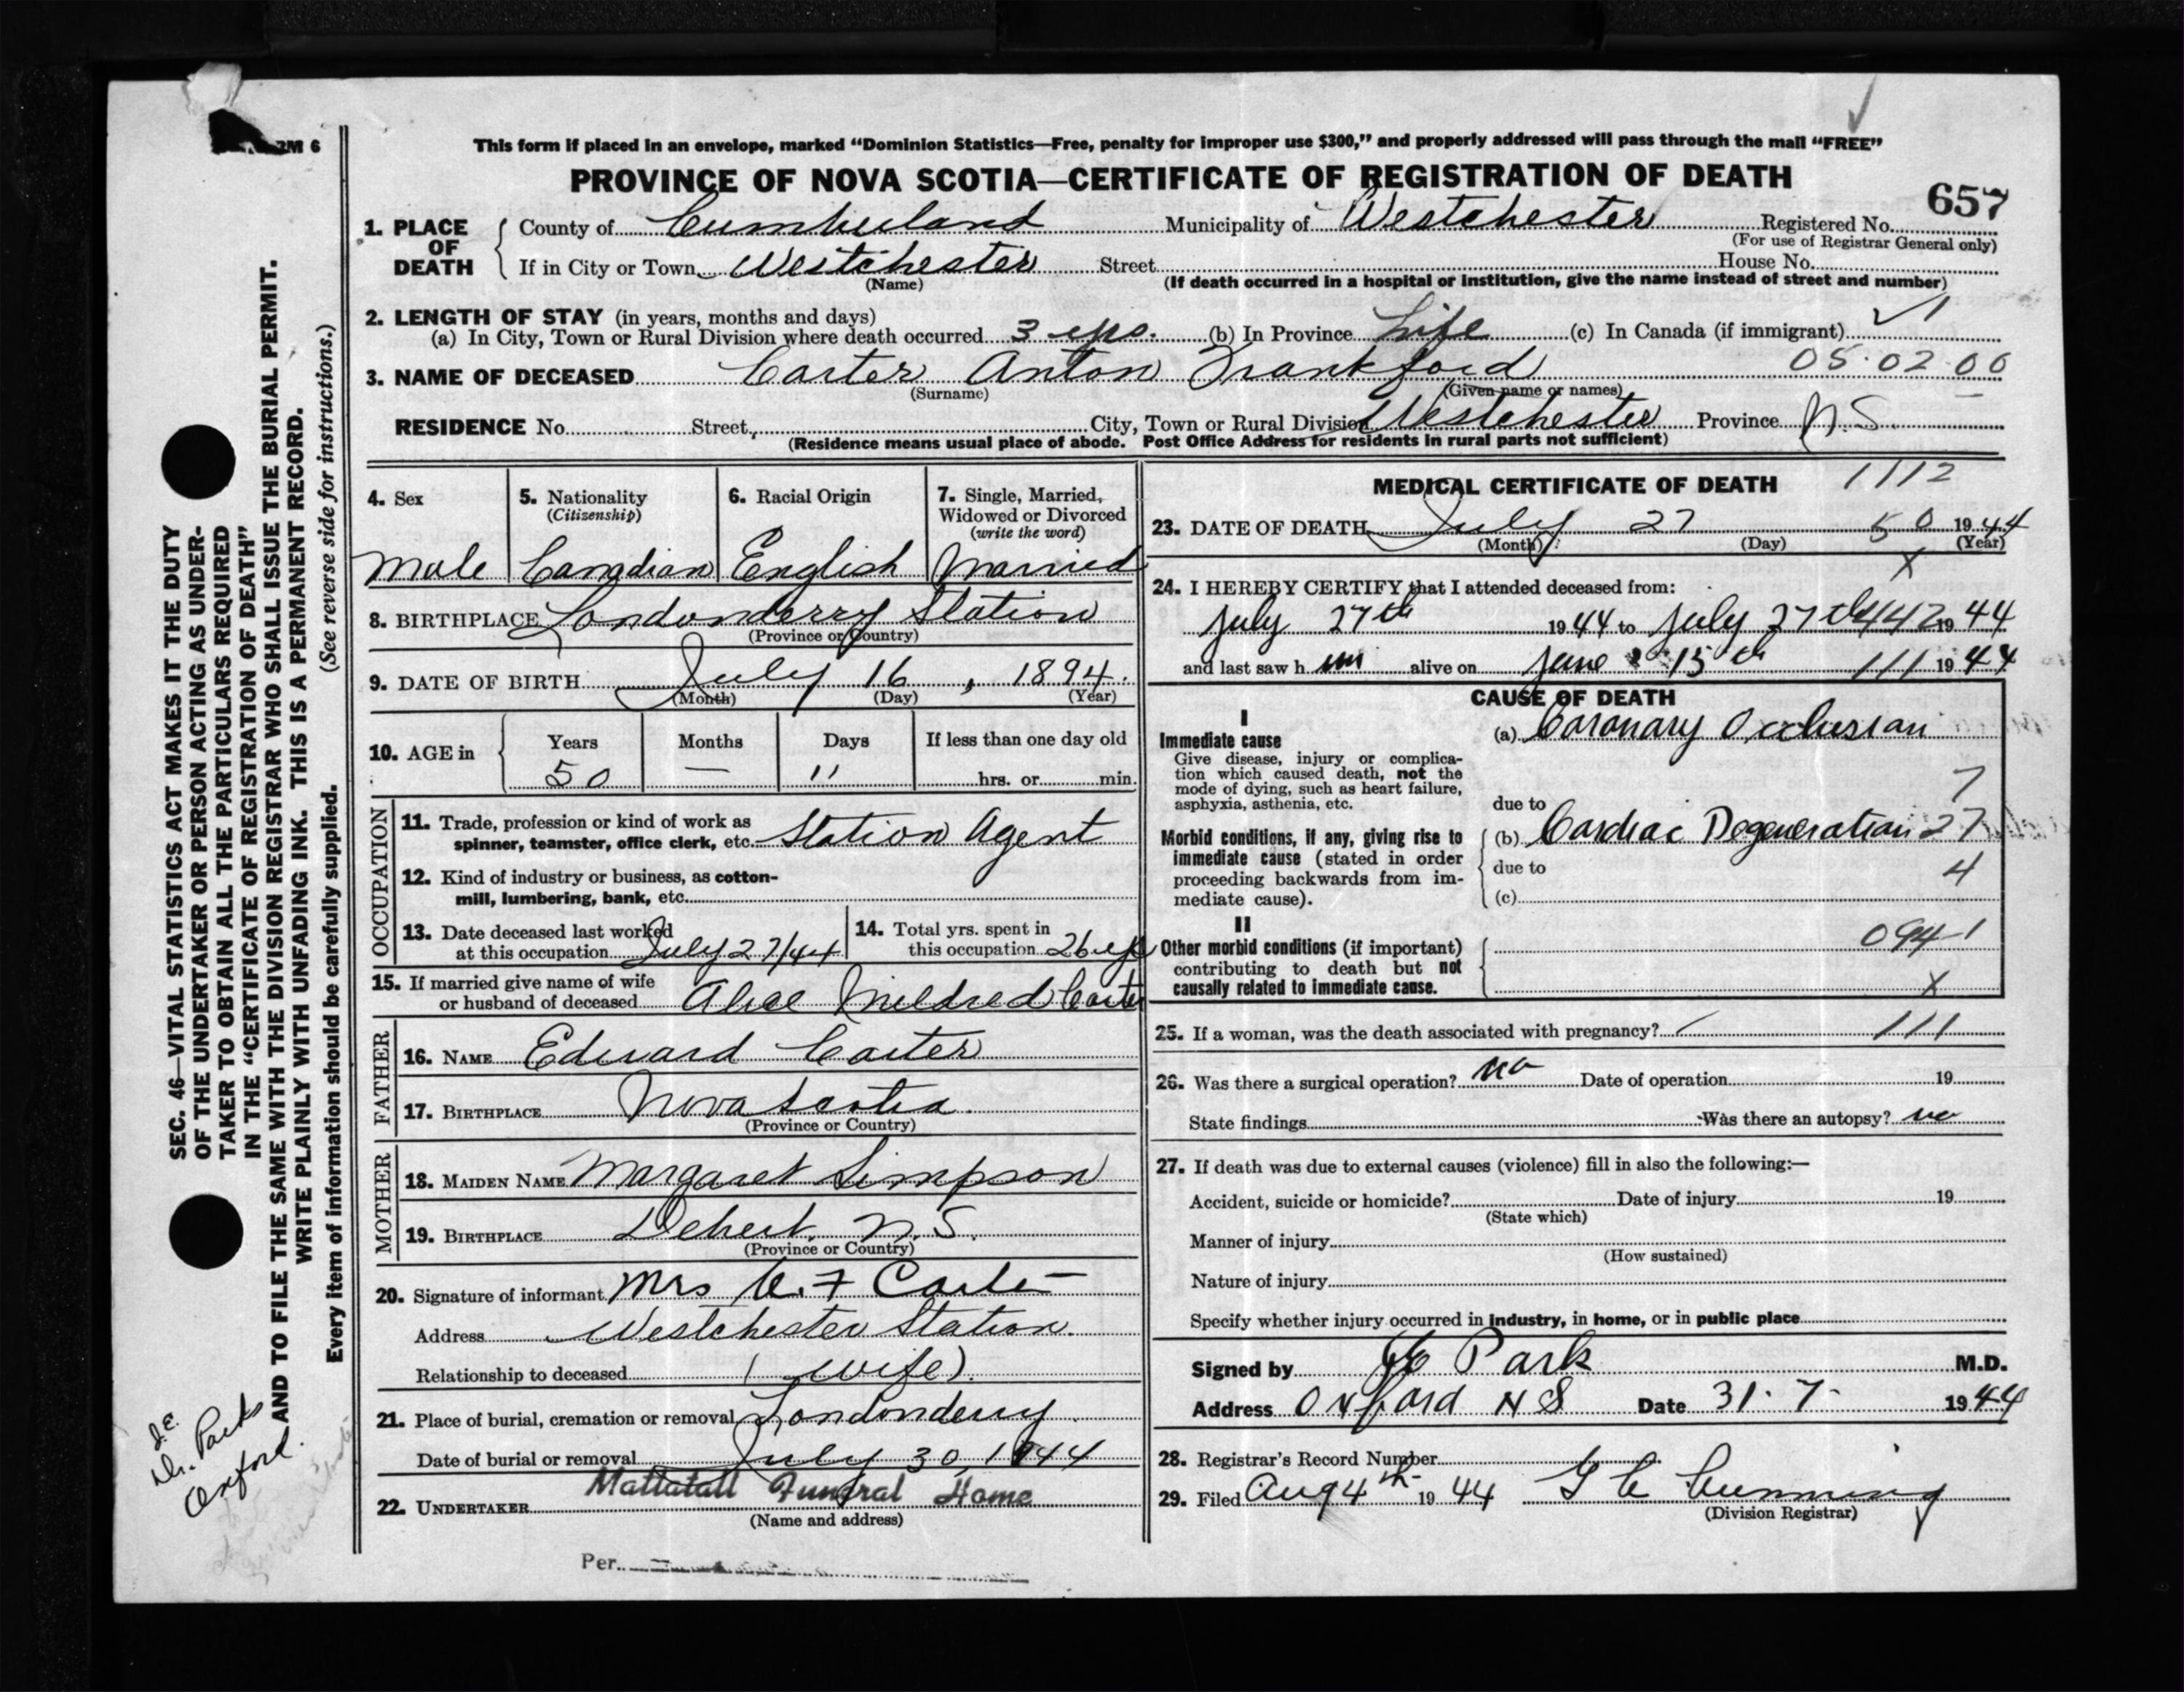 2M 6
This form if placed in an envelope, marked "Dominion Statistics—Free, penalty for improper use $300," and properly addressed will pass through the mail "FREE"
PROVINCE OF NOVA SCOTIA—CERTIFICATE OF REGISTRATION OF DEATH
657
1. PLACE OF DEATH County of Cumberland Municipality of Westchester Registered No.
(For use of Registrar General only)
If in City or Town Westchester Street House No.
(Name) (If death occurred in a hospital or institution, give the name instead of street and number)
2. LENGTH OF STAY (in years, months and days)
(a) In City, Town or Rural Division where death occurred 3 yrs. (b) In Province Life (c) In Canada (if immigrant)
3. NAME OF DECEASED Carter Anton Frankford 05.02.00
(Surname) (Given name or names)
RESIDENCE No. Street, City, Town or Rural Division Westchester Province N.S.
(Residence means usual place of abode. Post Office Address for residents in rural parts not sufficient)
4. Sex 5. Nationality (Citizenship) 6. Racial Origin 7. Single, Married, Widowed or Divorced (write the word)
Male Canadian English Married
8. BIRTHPLACE Londonderry Station
(Province or Country)
9. DATE OF BIRTH July 16, 1894.
(Month) (Day) (Year)
10. AGE in Years Months Days If less than one day old
50 — 11 hrs. or min.
OCCUPATION
11. Trade, profession or kind of work as
spinner, teamster, office clerk, etc. Station Agent
12. Kind of industry or business, as cotton-
mill, lumbering, bank, etc.
13. Date deceased last worked
at this occupation July 27/44
14. Total yrs. spent in
this occupation 26 yrs
15. If married give name of wife
or husband of deceased Alice Mildred Carter
FATHER
16. NAME Edward Carter
17. BIRTHPLACE Nova Scotia.
(Province or Country)
MOTHER
18. MAIDEN NAME Margaret Simpson
19. BIRTHPLACE Debert. N.S.
(Province or Country)
20. Signature of informant Mrs A. F Carter
Address Westchester Station.
Relationship to deceased (wife).
21. Place of burial, cremation or removal Londonderry.
Date of burial or removal July 30, 1944
22. UNDERTAKER Mattatall Funeral Home
(Name and address)
Per
MEDICAL CERTIFICATE OF DEATH 1112
23. DATE OF DEATH July 27 50 1944
(Month) (Day) (Year)
X
24. I HEREBY CERTIFY that I attended deceased from:
July 27th 1944 to July 27th 442 1944
and last saw h im alive on June 15th 111 1944
CAUSE OF DEATH
I
Immediate cause
Give disease, injury or complica-
tion which caused death, not the
mode of dying, such as heart failure,
asphyxia, asthenia, etc.
(a) Coronary Occlusion
7
due to
Morbid conditions, if any, giving rise to
immediate cause (stated in order
proceeding backwards from im-
mediate cause).
(b) Cardiac Degeneration 27
due to 4
(c)
II
Other morbid conditions (if important)
contributing to death but not
causally related to immediate cause.
094-1
X
25. If a woman, was the death associated with pregnancy? 111
26. Was there a surgical operation? no Date of operation 19
State findings Was there an autopsy? no
27. If death was due to external causes (violence) fill in also the following:—
Accident, suicide or homicide? Date of injury 19
(State which)
Manner of injury
(How sustained)
Nature of injury
Specify whether injury occurred in industry, in home, or in public place
Signed by Park M.D.
Address Oxford N S Date 31. 7. 1944
28. Registrar's Record Number
29. Filed Aug 4th 1944 G C Cumming
(Division Registrar)
SEC. 46—VITAL STATISTICS ACT MAKES IT THE DUTY
OF THE UNDERTAKER OR PERSON ACTING AS UNDER-
TAKER TO OBTAIN ALL THE PARTICULARS REQUIRED
IN THE "CERTIFICATE OF REGISTRATION OF DEATH"
AND TO FILE THE SAME WITH THE DIVISION REGISTRAR WHO SHALL ISSUE THE BURIAL PERMIT.
WRITE PLAINLY WITH UNFADING INK. THIS IS A PERMANENT RECORD.
Every item of information should be carefully supplied. (See reverse side for instructions.)
J.E.
Dr. Parks
Oxford.